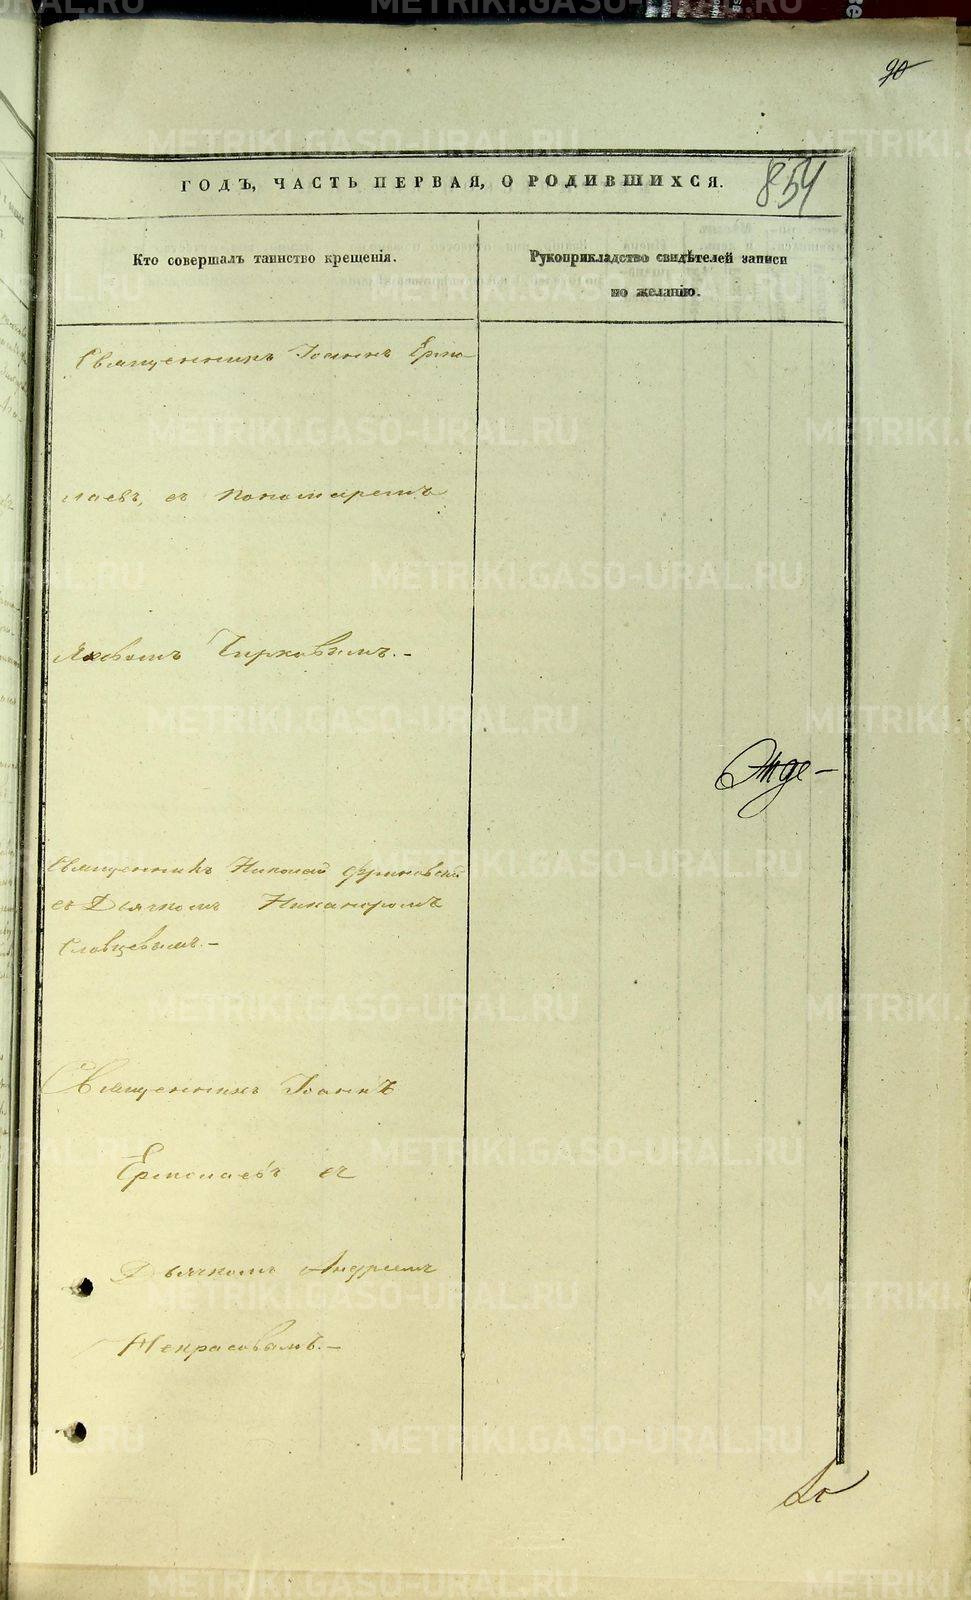 90
854
ГОДЪ, ЧАСТЬ ПЕРВАЯ, О РОДИВШИХСЯ.
Кто совершалъ таинство крещенія.
Рукоприкладство свидѣтелей записи
по желанію.
Священникъ Іоаннъ Ермо-
лаевъ, съ Пономаремъ
Яковомъ Чирковымъ.-
Священникъ Николай
съ Дьячкомъ Никаноромъ
Словцевымъ.-
Священникъ Іоаннъ
Ермолаевъ съ
Дьячкомъ Андреемъ
Некрасовымъ.-
METRIKI.GASO-URAL.RU